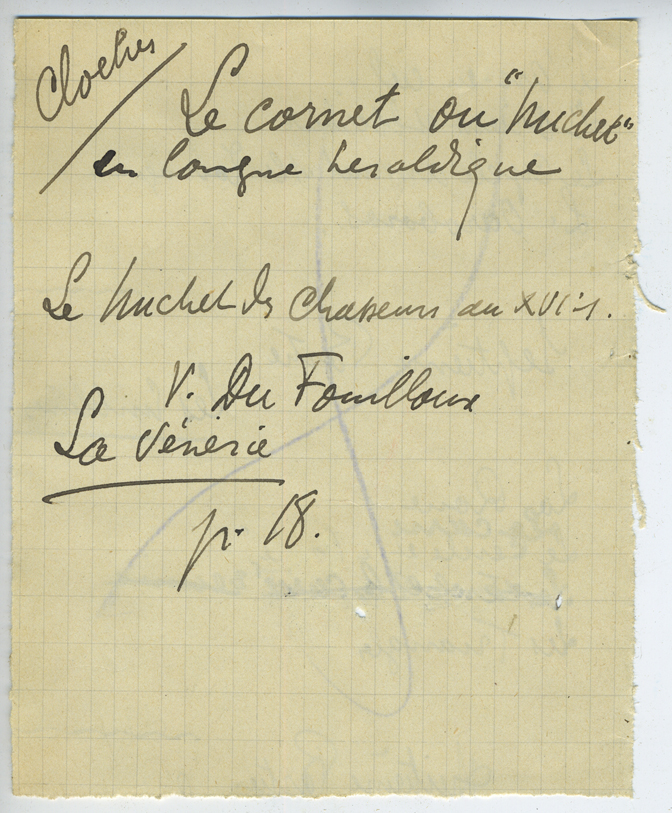 Cloches
Le cornet ou "huchet"
en langue heraldique
Le huchet des chasseurs au XVI s.
V. Du Fouilloux
La Vénerie
p. 18.